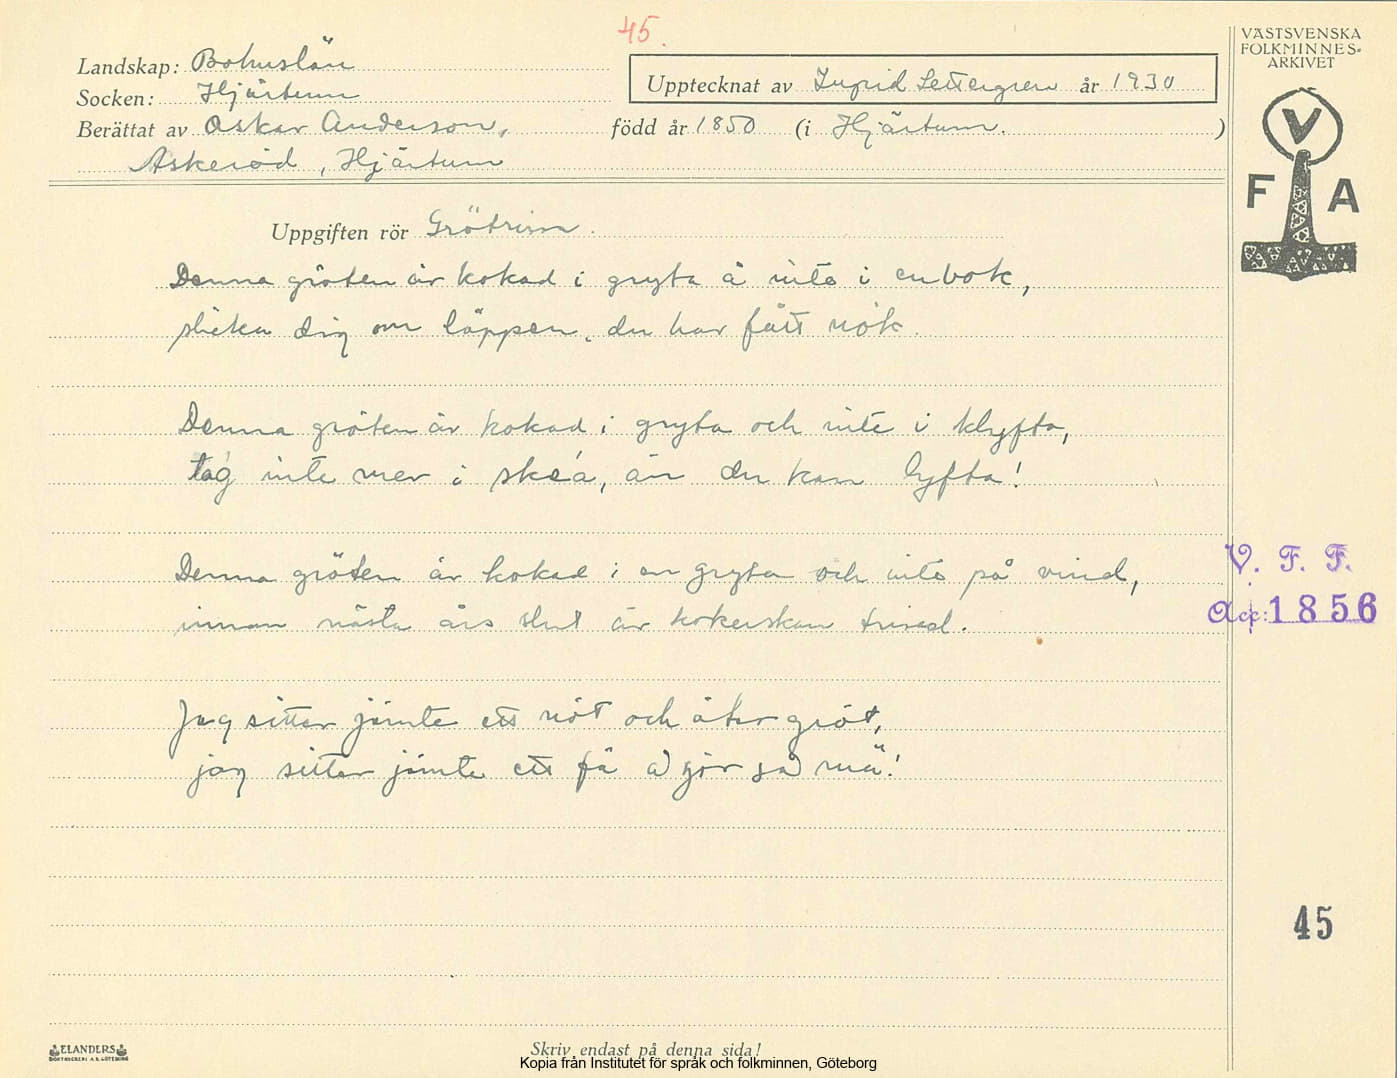 45.
VÄSTSVENSKA
FOLKMINNES-
ARKIVET
Landskap: Bohuslän
Upptecknat av Ingrid Settergren år 1930
Socken: Hjärtum
Berättat av Oskar Anderson, född år 1850 (i Hjärtum. )
Askeröd, Hjärtum
V
F A
Uppgiften rör Grötrim.
Denna gröten är kokad i gryta å inte i en bok,
slicka dig om läppen, du har fått nök.
Denna gröten är kokad i gryta och inte i klyfta,
tag inte mer i skea, än du kan lyfta!
Denna gröten är kokad i en gryta och inte på vind,
innan nästa års slut är kokerskan trind.
V. F. F.
Acc: 1856
Jag sitter jämte ett nöt och äter gröt,
jag sitter jämte ett fä å gör så mä!
45
ELANDERS
BOKTRYCKERI A.B. GÖTEBORG
Skriv endast på denna sida!
Kopia från Institutet för språk och folkminnen, Göteborg